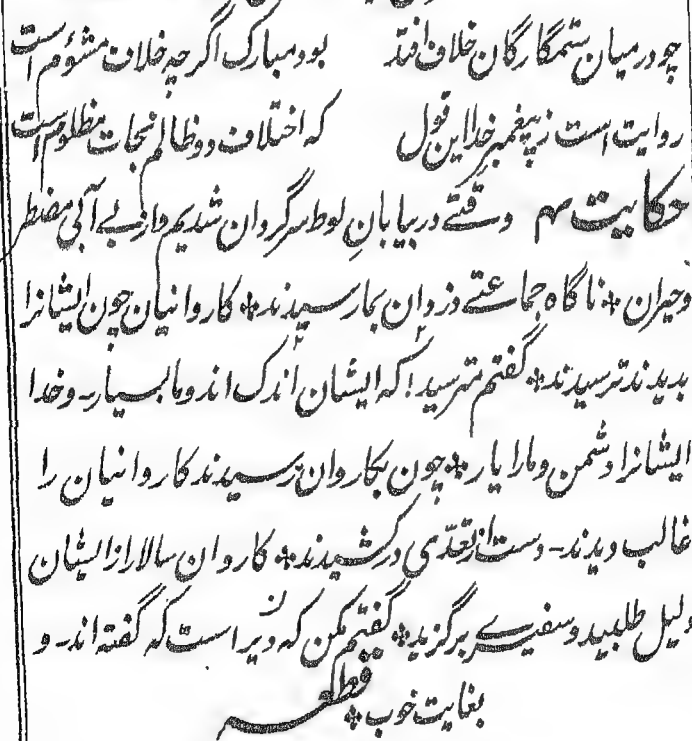 چو درمیان ستمگارگان خلاف افتد بود مبارک اگرچه خلاف مشؤم است
روایت است ز پیغمبر خدا این قول که اختلاف دو ظالم نجات مظلوم است
حکایت وقتے در بیابان لوط سرگردان شدیم و از بے آبی مضطر
وحیران * ناگاه جماعتے دزدان بما رسیدند * کاروانیان چون ایشانرا
بدیدند ترسیدند * گفتم مترسید! که ایشان اندک اند و ما بسیار - و خدا
ایشانرا دشمن و مارا یار * چون بکاروان برسیدند کاروانیان را
غالب دیدند - دست از تعدّی درکشیدند * کاروان سالار از ایشان
دلیل طلبید و سفیرے برگزید * گفتم مکن که دیر است که گفته اند - و
بغایت خوب * قطعه